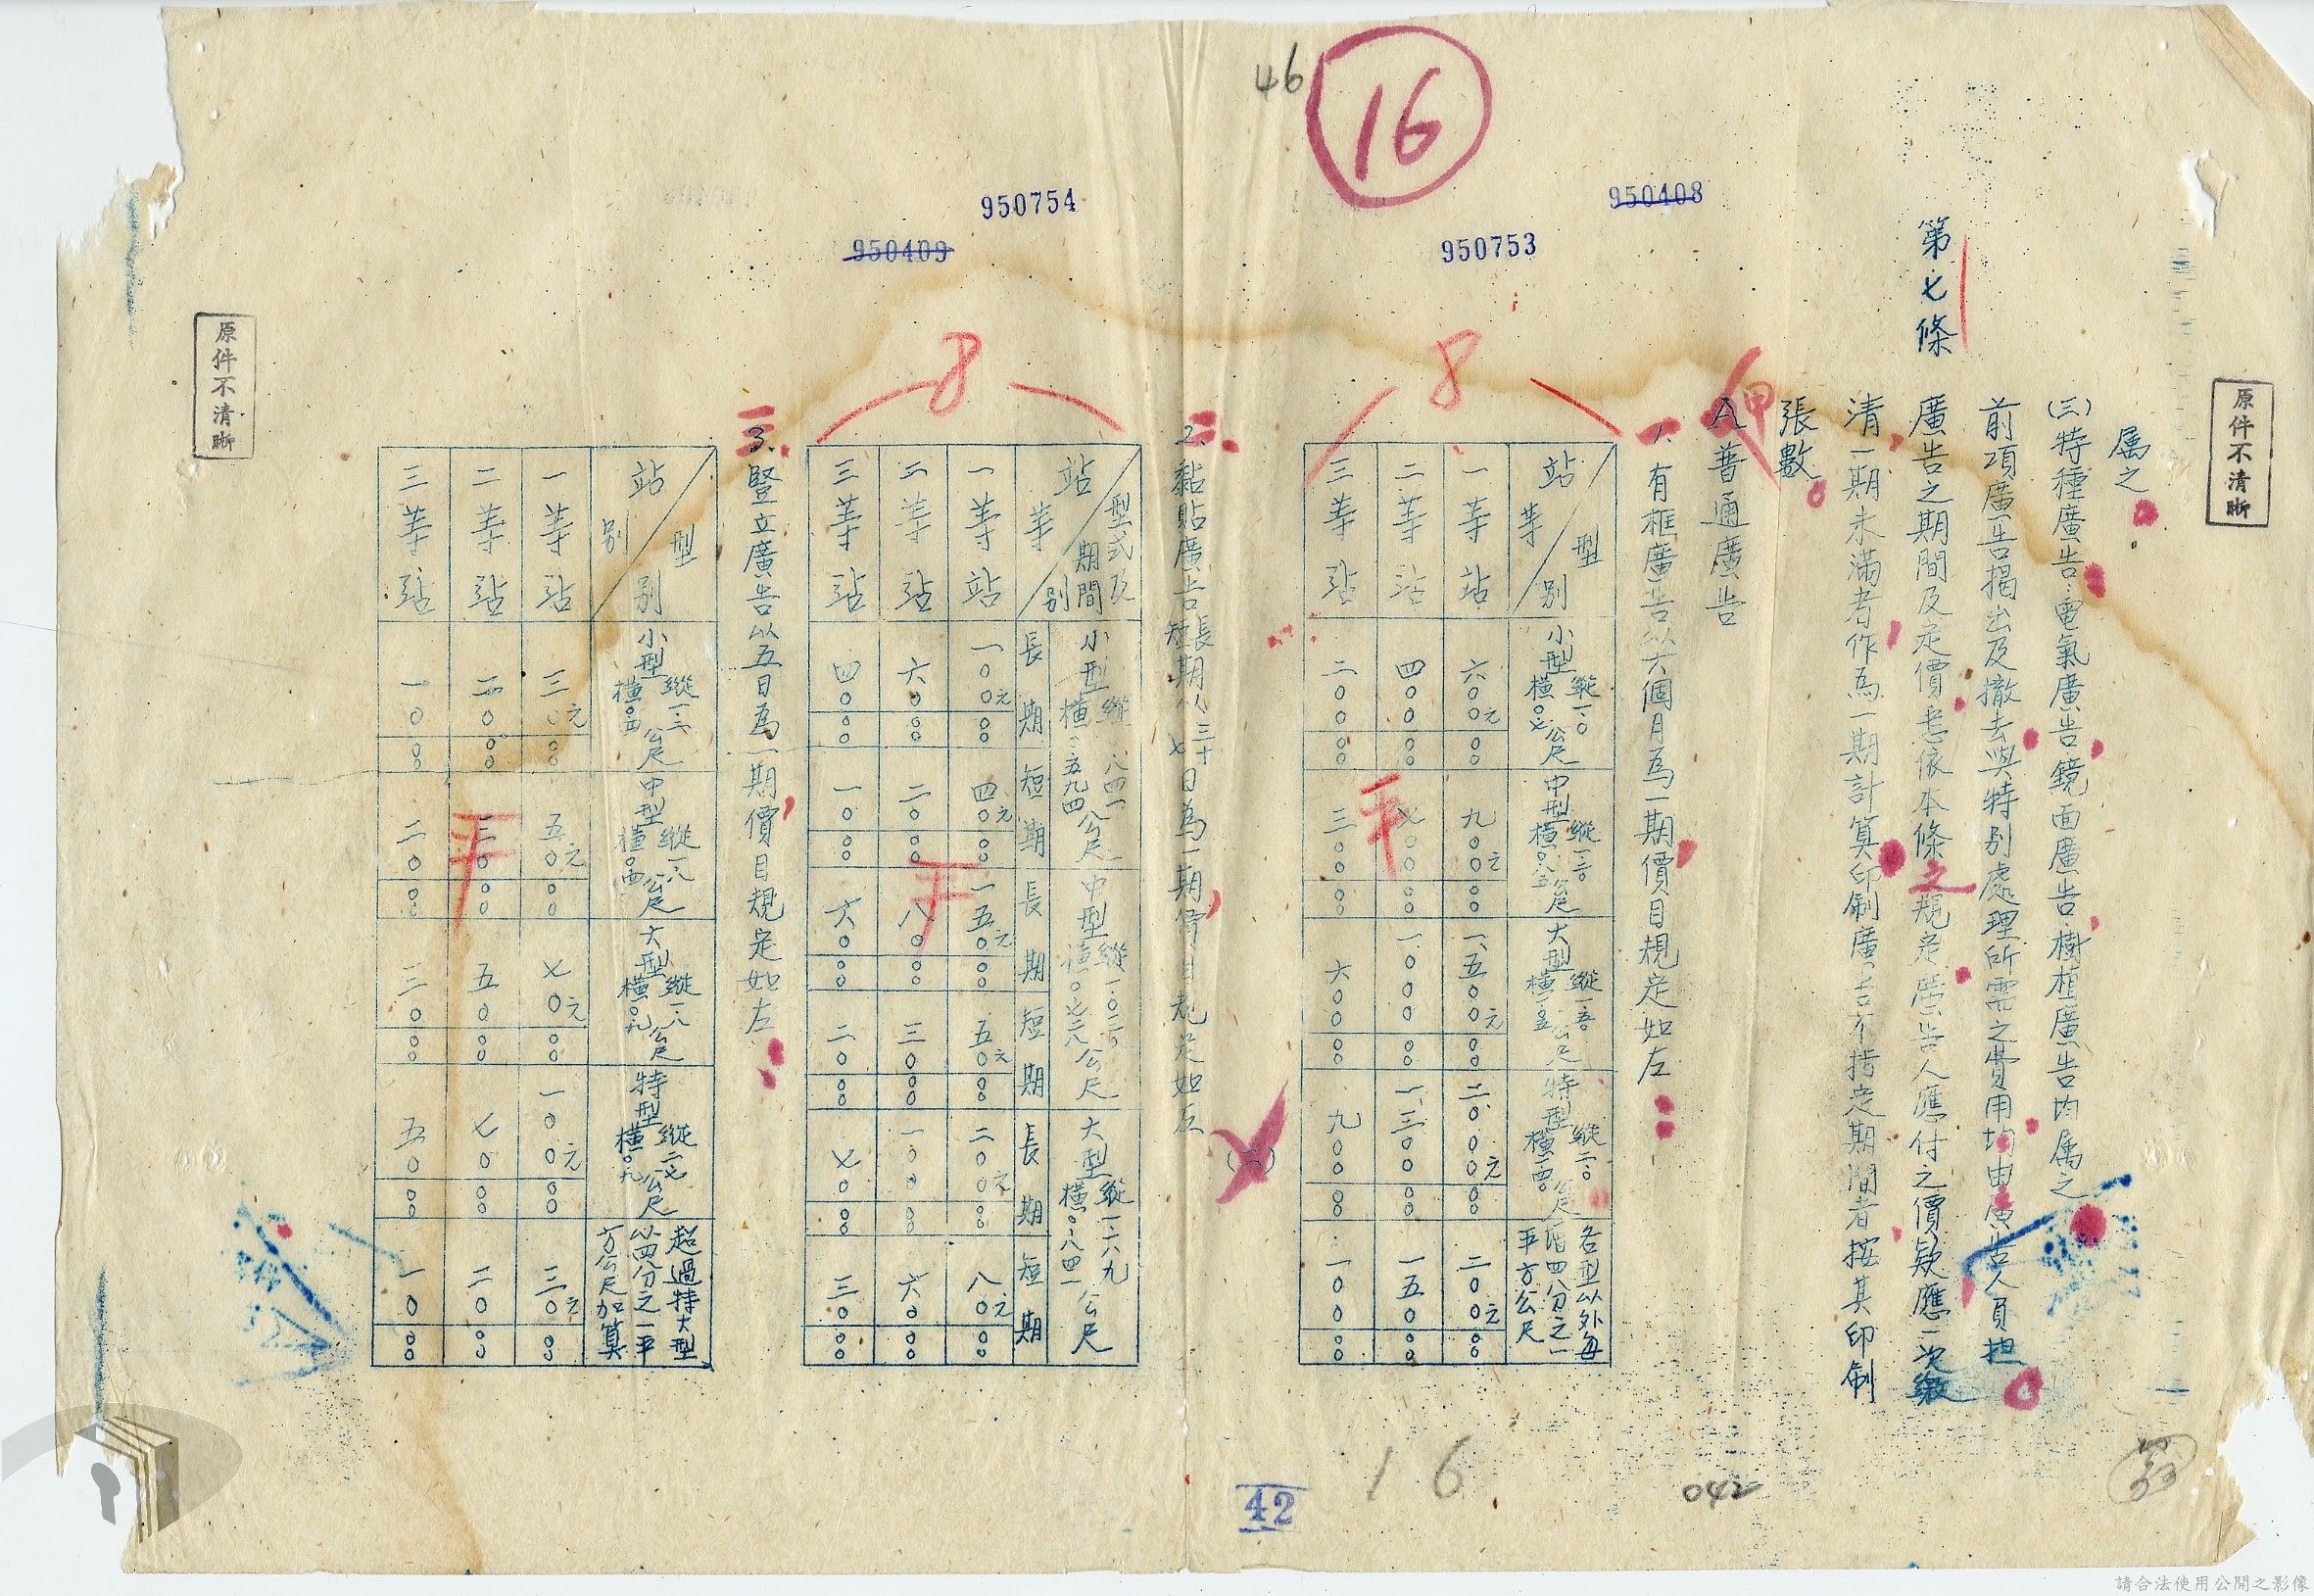 46
16
950408
950753
950754
950409
原件不清晰
属之
(三)特種廣告:電氣廣告鏡面廣告樹植廣告均属之
前項廣告揭出及撤去與特别處理所需之費用均由廣告人員担
第七條
廣告之期間及定價悉依本條之規定廣告人應付之價欵應一次繳
清一期未滿者作為一期計算印刷廣告不指定期間者按其印刷
張數
甲
A普通廣告
一
1.有框廣告以六個月為一期價目規定如左
8
站等 型别
小型 縱一.〇 橫〇.七 公尺
中型 縱 橫 公尺
大型 縱一.五〇 橫 公尺
特型 縱二.〇 橫 公尺
各型以外每增四分之一平方公尺
一等站 六〇〇元〇〇 九〇〇元〇〇 一.五〇〇元〇〇 二.〇〇〇元〇〇 二〇〇元〇〇
二等站 四〇〇〇〇 七〇〇〇〇 一.〇〇〇〇〇 一.三〇〇〇〇 一五〇〇〇
三等站 二〇〇〇〇 三〇〇〇〇 六〇〇〇〇 九〇〇〇〇 一〇〇〇〇
二
2.黏貼廣告長短期以三十七日為一期價目規定如左
8
站等别 型式及期間
小型 縱.八四一 橫.五九四 公尺
中型 縱一.〇三〇 橫〇.七二八 公尺
大型 縱一.一八九 橫〇.八四一 公尺
長期 短期 長期 短期 長期 短期
一等站 一〇〇元〇〇 四〇元〇〇 一五〇元〇〇 五〇元〇〇 二〇〇元〇〇 八〇元〇〇
二等站 六〇〇〇 二〇〇〇 八〇〇〇 三〇〇〇 一〇〇〇〇 六〇〇〇
三等站 四〇〇〇 一〇〇〇 六〇〇〇 二〇〇〇 七〇〇〇 三〇〇〇
三
3.豎立廣告以五日為一期價目規定如左
站别 型别
小型 縱 橫 公尺
中型 縱一.八 橫 公尺
大型 縱一.八 橫〇.九 公尺
特型 縱二.七 橫〇.九 公尺
超過特大型以四分之一平方公尺加算
一等站 三〇元〇〇 五〇元〇〇 七〇元〇〇 一〇〇元〇〇 三〇元〇〇
二等站 二〇〇〇 三〇〇〇 五〇〇〇 七〇〇〇 二〇〇〇
三等站 一〇〇〇 二〇〇〇 三〇〇〇 五〇〇〇 一〇〇〇
原件不清晰
42
16
042
請合法使用公開之影像